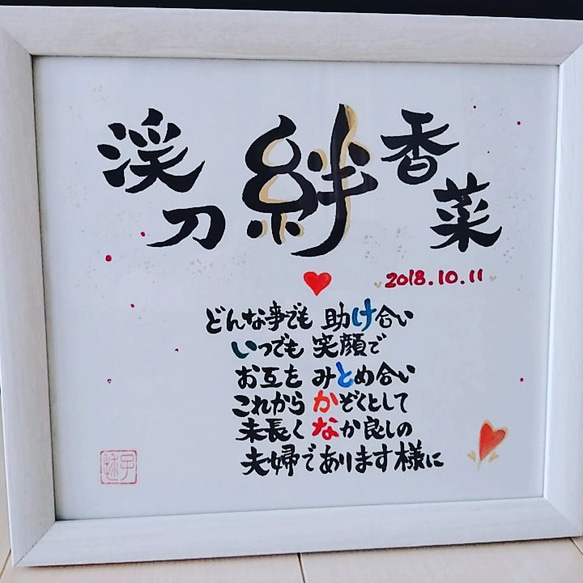 渓刀
絆
香菜
2018.10.11
どんな事でも 助け合い
いつでも 笑顔で
お互を みとめ合い
これから かぞくとして
末長く なか良しの
夫婦であります様に